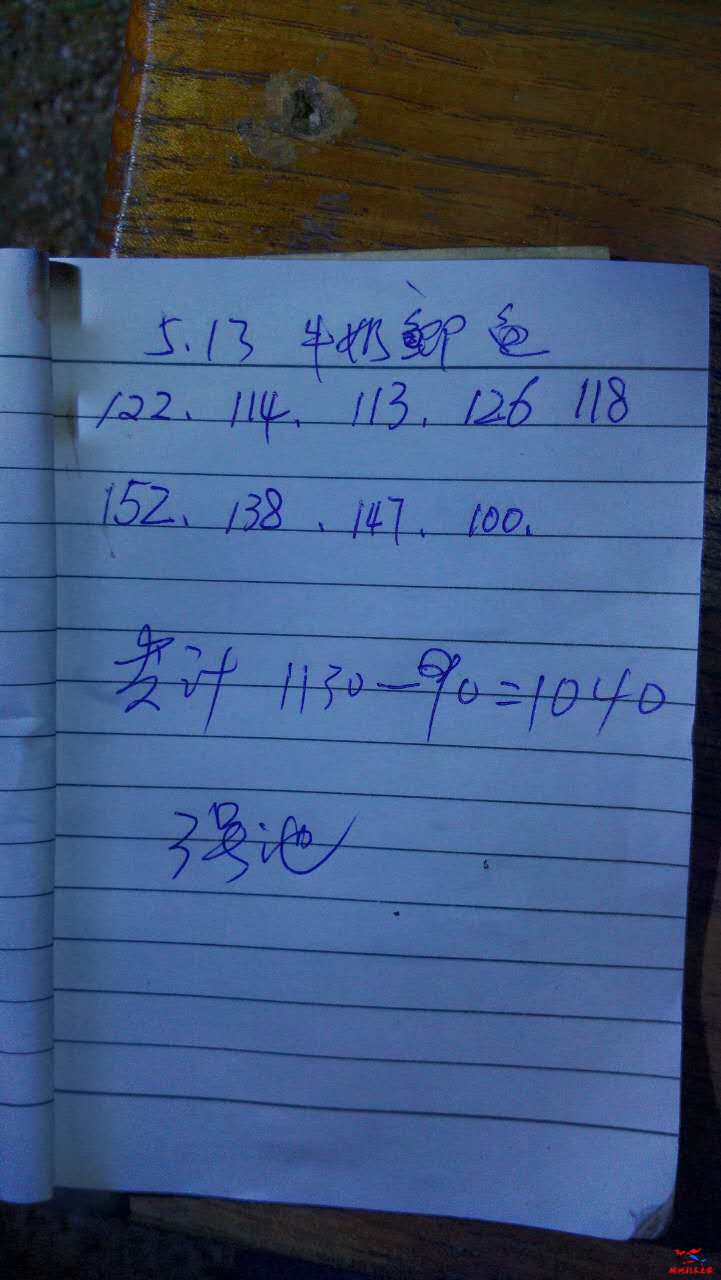 5.13 牛奶鲫鱼
122、114、113、126 118
152、138、147、100、
共计 1130-90=1040
3号池